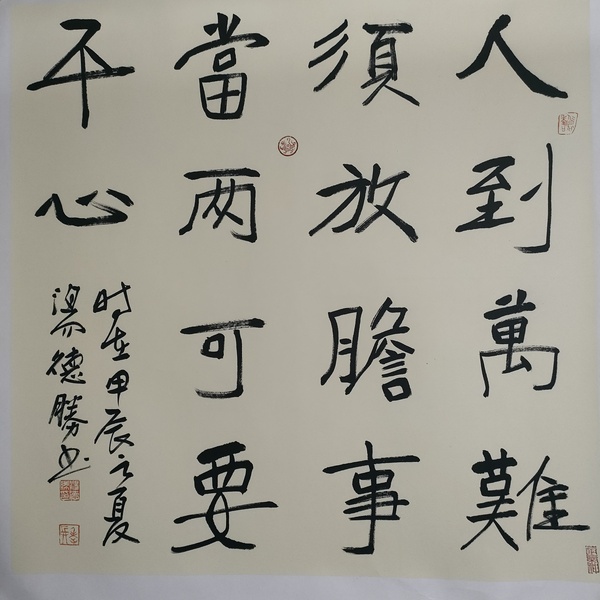 人到萬難
須放膽事
當两可要
平心
时在甲辰之夏
德勝书